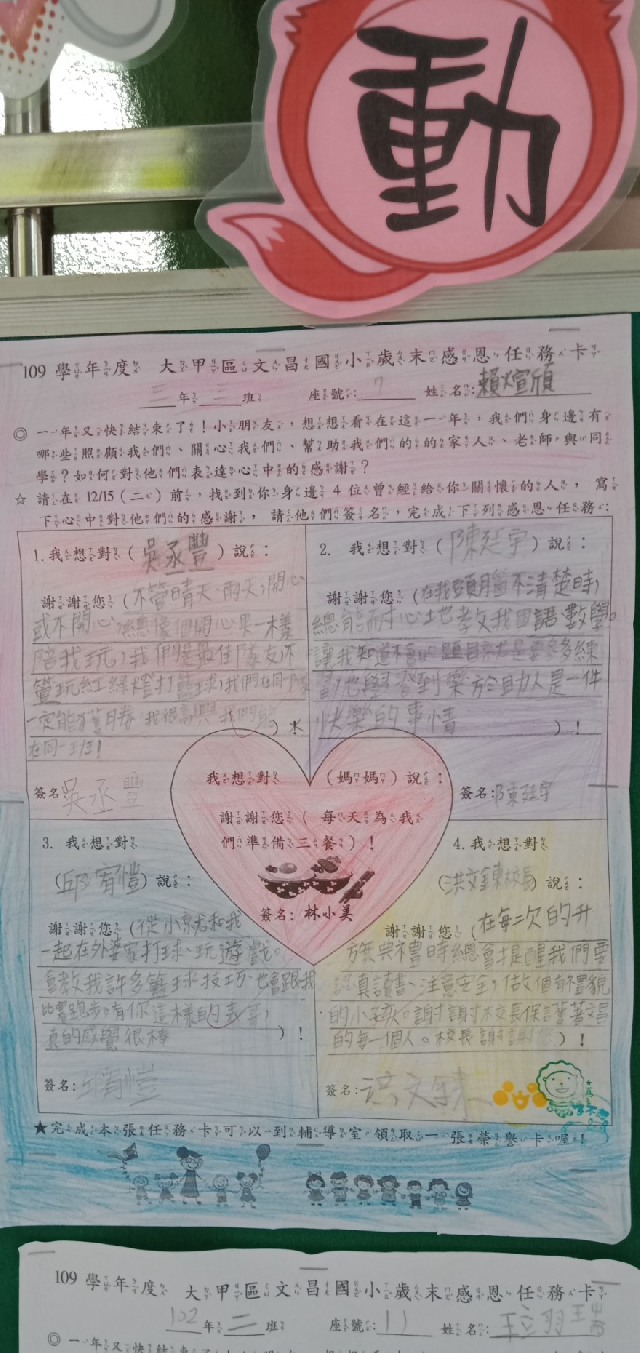 動
109 學年度 大甲區文昌國小歲末感恩任務卡
三年三班 座號：7 姓名：賴煊頎
◎ 一年又快結束了！小朋友，想想看在這一年，我們身邊有
哪些照顧我們、關心我們、幫助我們的的家人、老師與同
學？如何對他們表達心中的感謝？
☆ 請在 12/15（二）前，找到你身邊 4 位曾經給你關懷的人，寫
下心中對他們的感謝，請他們簽名，完成下列感恩任務：
1. 我想對（吳丞豐）說：
謝謝您（不管晴天、雨天，開心
或不開心，
陪我玩，我們
管玩紅綠燈打籃球，我們在同一隊
一定能
在同一班！
簽名：吳丞豐
2. 我想對（陳廷宇）說：
謝謝您（在我頭腦不清楚時，
總有耐心地教我國語、數學。
讓我知道不會的題目就是要多練
習，也學習到樂於助人是一件
快樂的事情）！
簽名：陳廷宇
我想對（媽媽）說：
謝謝您（每天為我
們準備三餐）！
簽名：林小美
3. 我想對
（邱宥愷）說：
謝謝您（從小就和我
一起在外婆家打球、玩遊戲。
會教我許多籃球技巧，也會跟我
比賽跑步。有你這樣的表哥，
真的感覺很棒）！
簽名：邱宥愷
4. 我想對
（洪文錬校長）說：
謝謝您（在每一次的升
旗典禮時總會提醒我們要
認真讀書、注意安全，做個有禮貌
的小孩。謝謝校長保護著文昌
的每一個人。校長謝謝）！
簽名：洪文錬
★完成本張任務卡可以到輔導室領取一張榮譽卡喔！
109 學年度 大甲區文昌國小歲末感恩任務卡
102年二班 座號：11 姓名：
◎ 一年又快結